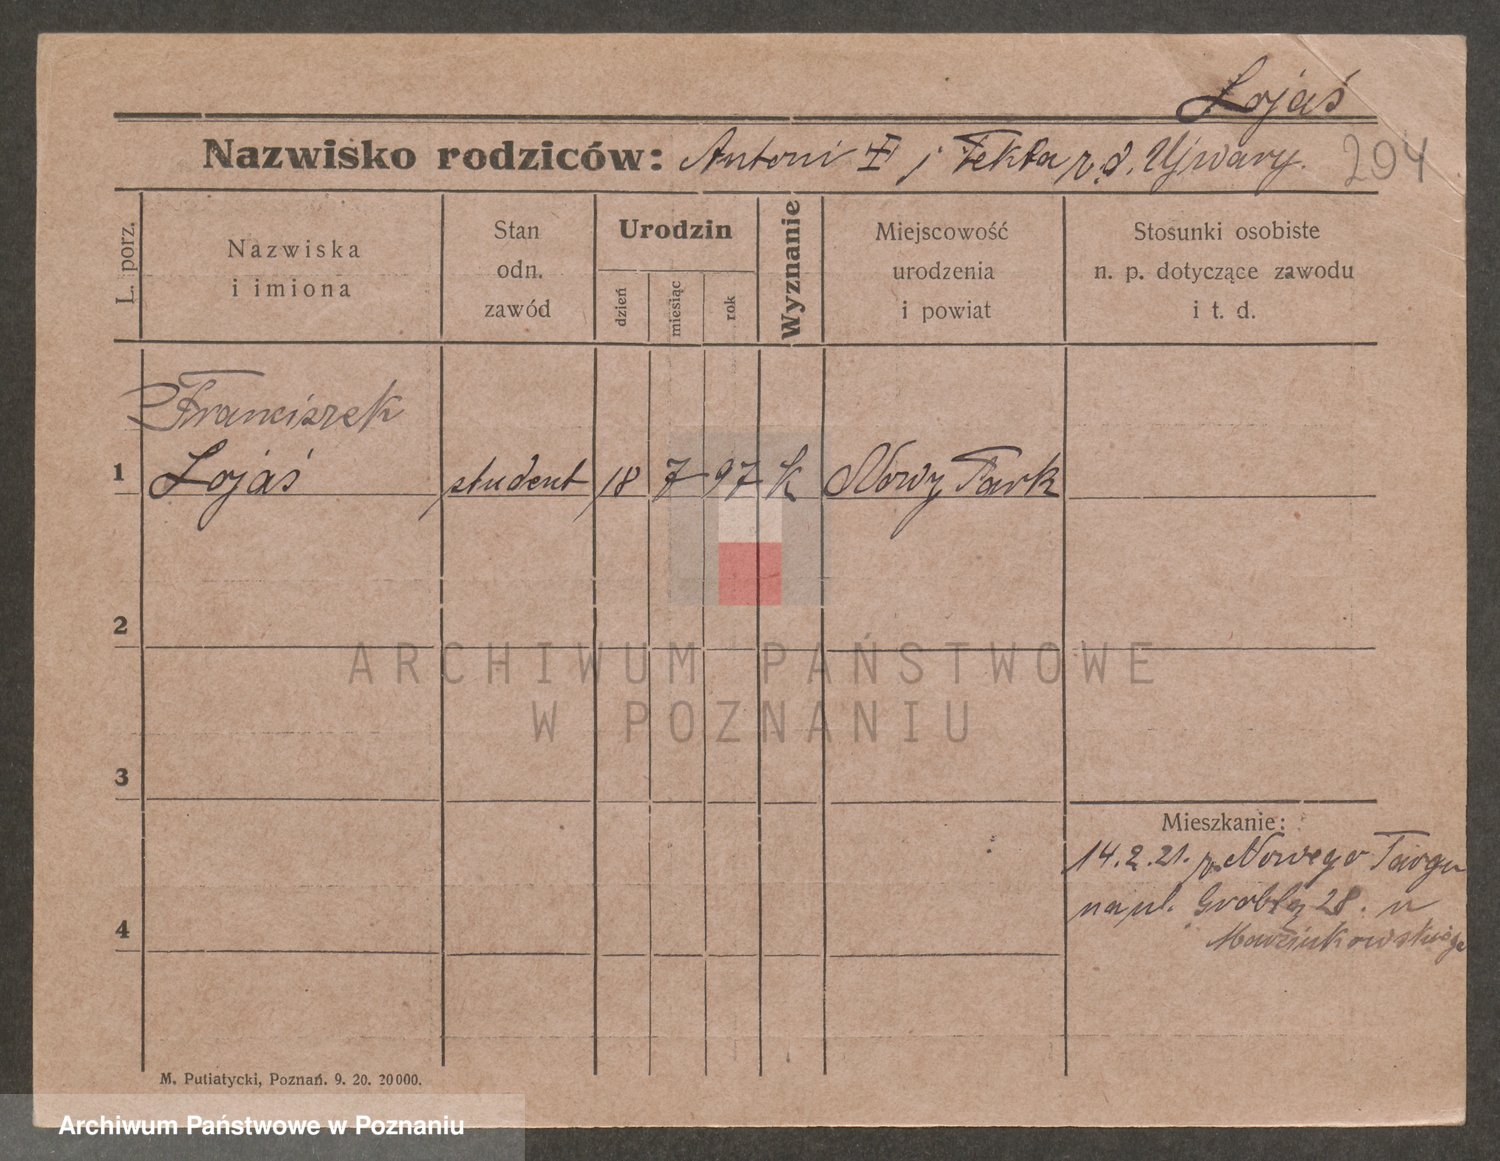 Lojaś
Nazwisko rodziców: Antoni i Tekla r. d. Ujwary. 294
L. porz.
Nazwiska
i imiona
Stan
odn.
zawód
Urodzin
dzień
miesiąc
rok
Wyznanie
Miejscowość
urodzenia
i powiat
Stosunki osobiste
n. p. dotyczące zawodu
i t. d.
Franciszek
1 Lojaś student 18 7 97 k Nowy Tark
2
3
Mieszkanie:
14.2.21. z Nowego Targu
na ul. Groblą 28. u
Mawzinkowskiego
4
M. Putiatycki, Poznań. 9. 20. 20000.
ARCHIWUM PAŃSTWOWE
W POZNANIU
Archiwum Państwowe w Poznaniu